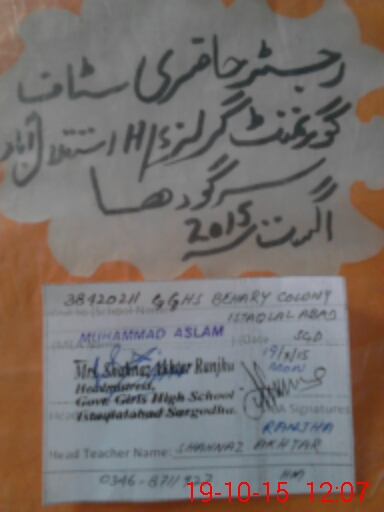 رجسٹر حاضری سٹاف
گورنمنٹ گرلز H/S استقلال آباد
سرگودھا
اگست 2015
38420211 GGHS BEHARY COLONY
ISTAQLAL ABAD
MUHAMMAD ASLAM SGD
19/X/15
MON
Mrs. Shahnaz Akhtar Ranjha
Headmistress,
Govt. Girls High School
Istaqlalabad Sargodha.
Signatures
RANJHA
Head Teacher Name: SHAHNAZ AKHTAR
HM
19-10-15 12:07